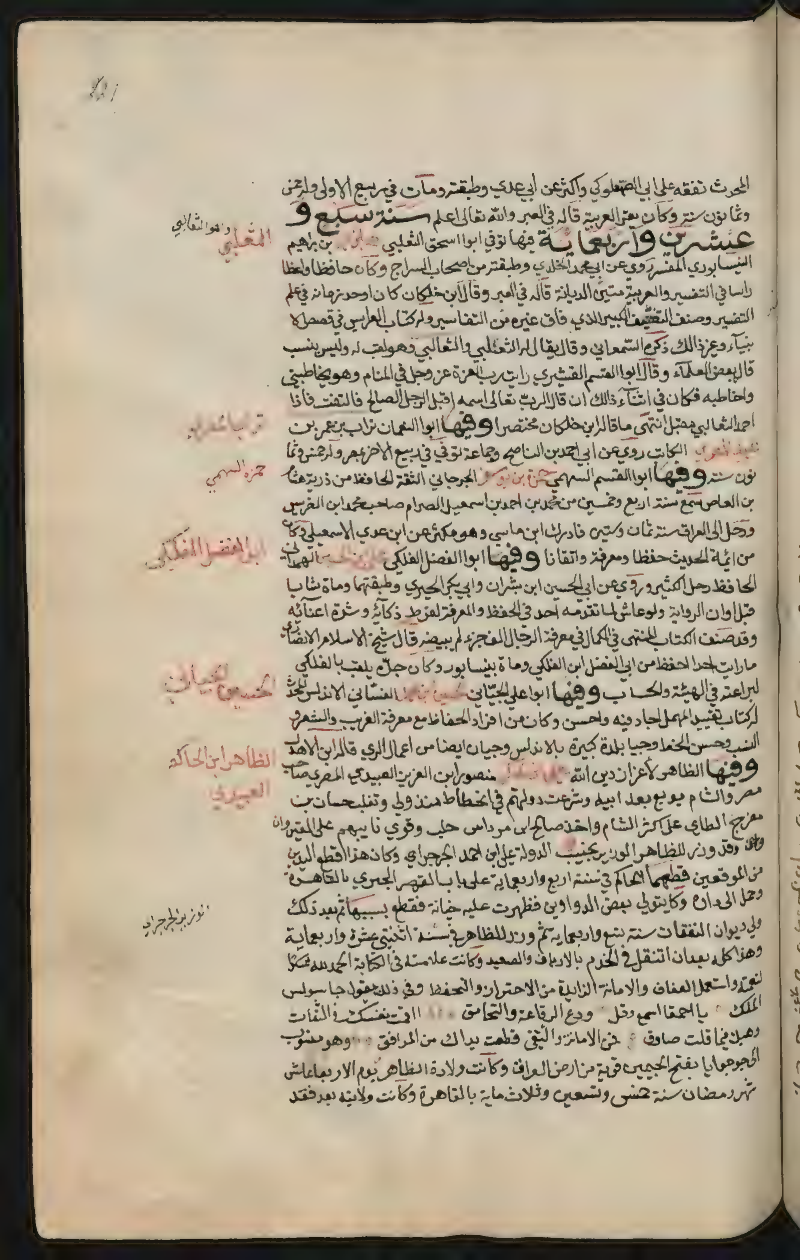 221
المحدث تفقه على ابي الصعلوكي واكثر عن ابي عدي وطبقته ومات في ربيع الاولى وله ثمن
وثمانون سنة وكان يقرئ العربية قاله في العبر والله تعالى اعلم سنة سبع و
عشرين واربعماية فيها توفي ابوا اسحق الثعلبي بن براهيم
النيسابوري المفسر روي عن ابي محمد المخلدي وطبقته من اصحاب السراج وكان حافظا واعظا
راسا في التفسير والعربية متين الديانة قاله في العبر وقال ابن خلكان كان اوحد زمانه في علم
التفسير وصنف التفسير الكبير الذي فاق غيره من التفاسير وله كتاب العرايس في قصص الا
نبياء وغير ذالك ذكره السمعاني وقال يقال له الثعلبي والثعالبي وهو لقب له وليس بنسب
قاله بعض العلماء وقال ابوا القسم القشيري رايت رب العزة عز وجل في المنام وهو يخاطبني
واخاطبه فكان في اثناء ذالك ان قال الرب تعالى اسمه اقبل الرجل الصالح فالتفت فاذا
احمد الثعالبي مقبل انتهى ما قاله ابن خلكان مختصرا وفيها ابوا النعمان تراب بن عمر بن
عبيد المصري الكاتب روي عن ابي احمد بن الناصح وجماعة توفي في ربيع الاخر بمصر وله خمس وثما
نون سنة وفيها ابوا القسم السهمي حمزة بن يوسف الجرجاني الثقة الحافظ من ذرية هشام
بن العاص سمع سنة اربع وخمسين من محمد بن احمد بن اسمعيل الصرام صاحب محمد ابن الضريس
ورحل الى العراق سنة ثمان وستين فادرك ابن ماسي وهو مكثر عن ابن عدي الاسمعيلي وكان
من ائمة الحديث حفظا ومعرفة واتقانا وفيها ابوا الفضل الفلكي علي بن الحسين الهمداني
الحافظ رحل الكثير وروي عن ابي الحسين ابن بشران وابي بكر الحيري وطبقتهما ومات شابا
قبل اوان الرواية ولو عاش لما تقدمه احد في الحفظ والمعرفة لفرط ذكائه وشدة اعتنائه
وقد صنف الكتاب المنتهى في الكمال في معرفة الرجال الف جزء لم يبيضه قال شيخ الاسلام الانصاري
ما رايت احدا احفظ من ابي الفضل ابن الفلكي ومات بنيسابور وكان جده يلقب بالفلكي
لبراعته في الهيئة والحساب وفيها ابوا علي الجياني حسين بن محمد الغساني الاندلسي المحدث
له كتاب تقييد المهمل اجاد فيه واحسن وكان من افراد الحفاظ مع معرفة الغريب والشعر و
النسب وحسن الخط وجيا بلدة كبيرة بالاندلس وجيان ايضا من اعمال الري قاله ابن الاهدل
وفيها الظاهر لأعزاز دين الله علي بن الحاكم منصور ابن العزيز العبيدي المصري صاحب
مصر والشام بويع بعد ابيه وشرعت دولتهم في انحطاط منذ ولي وتغلب حسان بن
مفرج الطاي على اكثر الشام واخذ صالح ابن مرداس حلب وقوي نايبهم على القيروان
وقد وزر للظاهر الوزير نجيب الدولة علي ابن احمد الجرجراي وكان هذا اقطع اليدين
من الموقعين قطعهما الحاكم في سنة اربع واربعماية على باب القصر البحري بالقاهرة
وحمل الى داره وكان يتولى بعض الدواوين فظهرت عليه خيانة فقطع بسببها ثم بعد ذلك
ولي ديوان النفقات سنة تسع واربعماية ثم وزر للظاهر في سنة اثنتي عشرة واربعماية
وهذا كله بعد ان انتقل في الخدم بالارياف والصعيد وكانت علامته في الكتابة الحمد لله شكرا
لنعمته واستعمل العفاف والامانة الزايدة من الاحتراز والتحفظ وفي ذلك يقول جاسوس
الملك يا احمقا اسمع وقل ودع الرقاعة والتحامق ااقمت نفسك في الثقات
وهبك فيما قلت صادق فمن الامانة والتقى قطعت يداك من المرافق وهو منسوب
الى جرجرايا بفتح الجيمين قرية من ارض العراق وكانت ولادة الظاهر يوم الاربعا عاشر
شهر رمضان سنة خمس وتسعين وثلاث ماية بالقاهرة وكانت ولايته بعد فقد
وهو الثعالبي
الثعلبي
تراب بن عمر
حمزه السهمي
ابوا الفضل الفلكي
الحسين الجياني
الظاهر ابن الحاكم
العبيدي